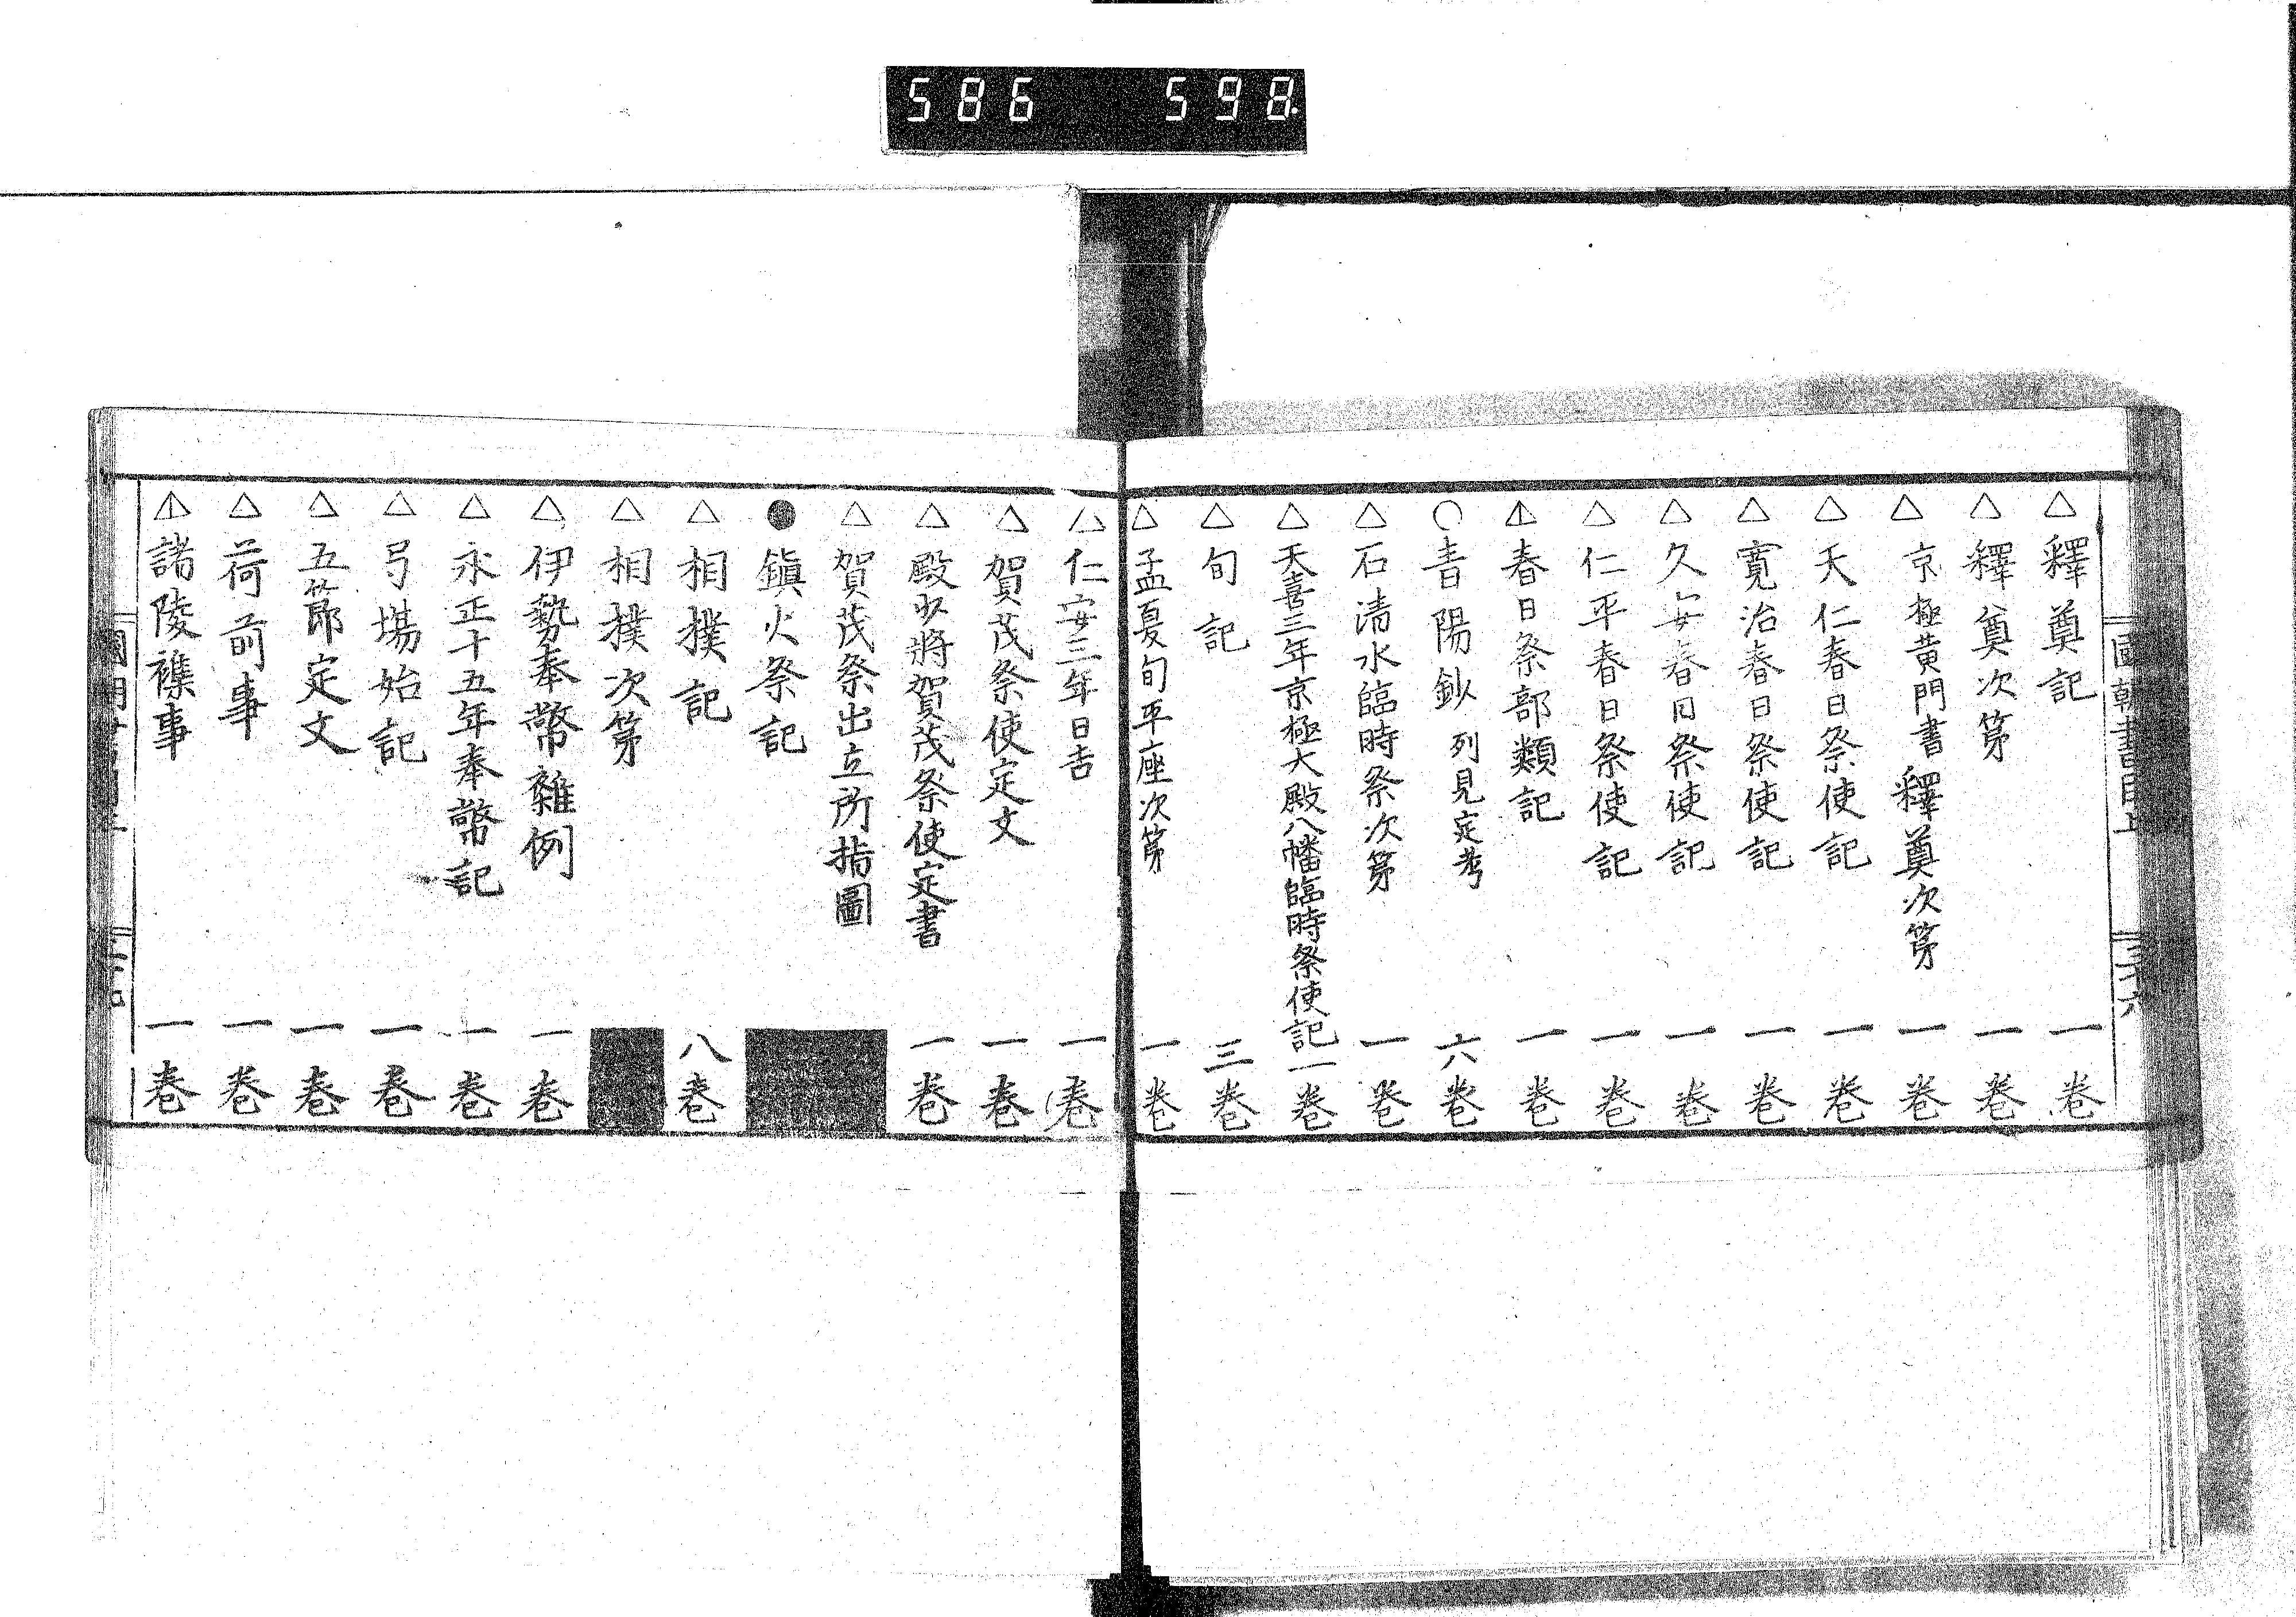 586 598.
國朝書目上
三十六
△釋奠記 一巻
△釋奠次第 一巻
△京極黄門書釋奠次第 一巻
△天仁春日祭使記 一巻
△寛治春日祭使記 一巻
△久安春日祭使記 一巻
△仁平春日祭使記 一巻
△春日祭部類記 一巻
○青陽鈔 列見定考 六巻
△石清水臨時祭次第 一巻
△天喜三年京極大殿八幡臨時祭使記 一巻
△旬記 三巻
△孟夏旬平座次第 一巻
△仁安三年日吉 一巻
△賀茂祭使定文 一巻
△殿少將賀茂祭使定書 一巻
△賀茂祭出立所指圖
●鎭火祭記
△相撲記 八巻
△相撲次第
△伊勢奉幣雜例 一巻
△永正十五年奉幣記 一巻
△弓場始記 一巻
△五節定文 一巻
△荷前事 一巻
△諸陵襍事 一巻